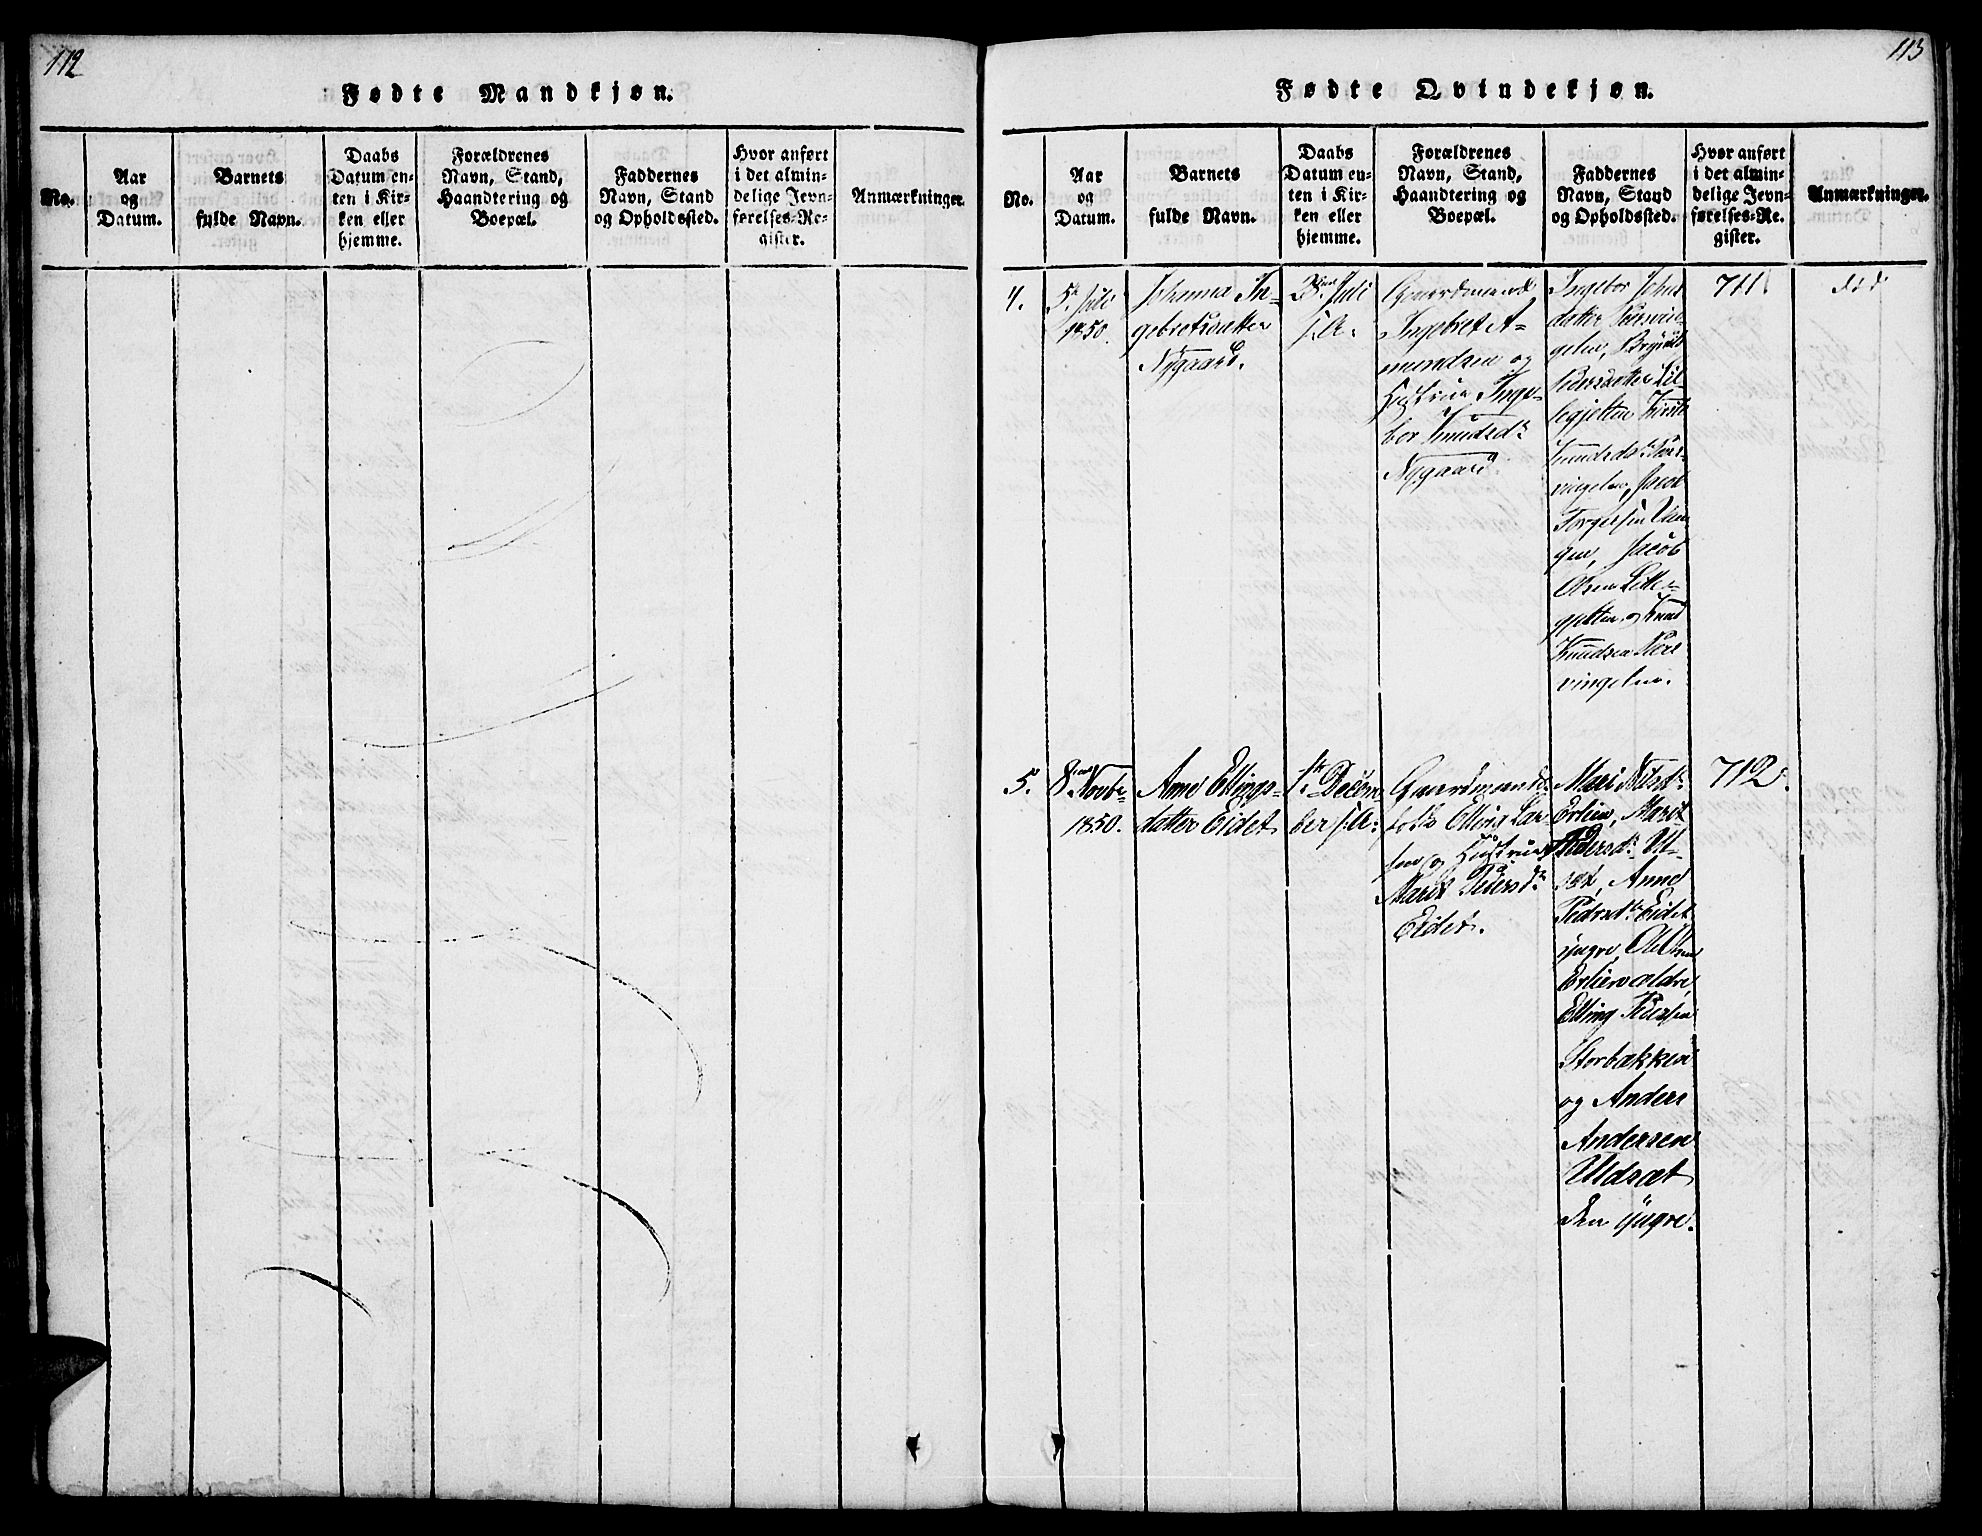 112
Fødte Mandkjøn.
No.
Aar
og
Datum.
Barnets
fulde Navn.
Daabs
Datum en-
ten i Kir-
ken eller
hjemme.
Forældrenes
Navn, Stand,
Haandtering og
Boepæl.
Faddernes
Navn, Stand
og Opholdssted.
Hvor anført
i det almin-
delige Jevn-
førelses-Re-
gister.
Anmærkninger.
113
Fødte Qvindekjøn.
No.
Aar
og
Datum.
Barnets
fulde Navn.
Daabs
Datum en-
ten i Kir-
ken eller
hjemme.
Forældrenes
Navn, Stand,
Haandtering og
Boepæl.
Faddernes
Navn, Stand
og Opholdssted.
Hvor anført
i det almin-
delige Jevn-
førelses-Re-
gister.
Anmærkninger.
4.
5te Juli
1850.
Johanna In-
gebretsdatter
Nygaard.
Juli
s.A.
Gaardmand
Ingebret A-
mundsen og
Hustrue Inge-
bor Knudsdr
Nygaard.
Ingebor Johns
datter
Pedersdatter Lil-
legjelten
Knudsdr
vingelen, Jacob
Torgersen
gen, Jacob
Olsen Lille-
gjelten og Knud
Knudsen
vingelen.
711
død
5.
8de Novbr
1850.
Anne Ellings-
datter Eidet
1te Decem-
ber s.A.
Gaardmands-
folk Elling Lar-
sen og Hustrue
Marit Pedersdr
Eidet.
Mari Nilsdr
Erlien, Marit
Pedersdr Ud-
sæt, Anne
Pedersdr Eidet
yngre, Ole Olsen
Erlien ældre,
Elling Pedersen
Storbækken
og Anders
Andersen
Udsæt
den yngre.
712.